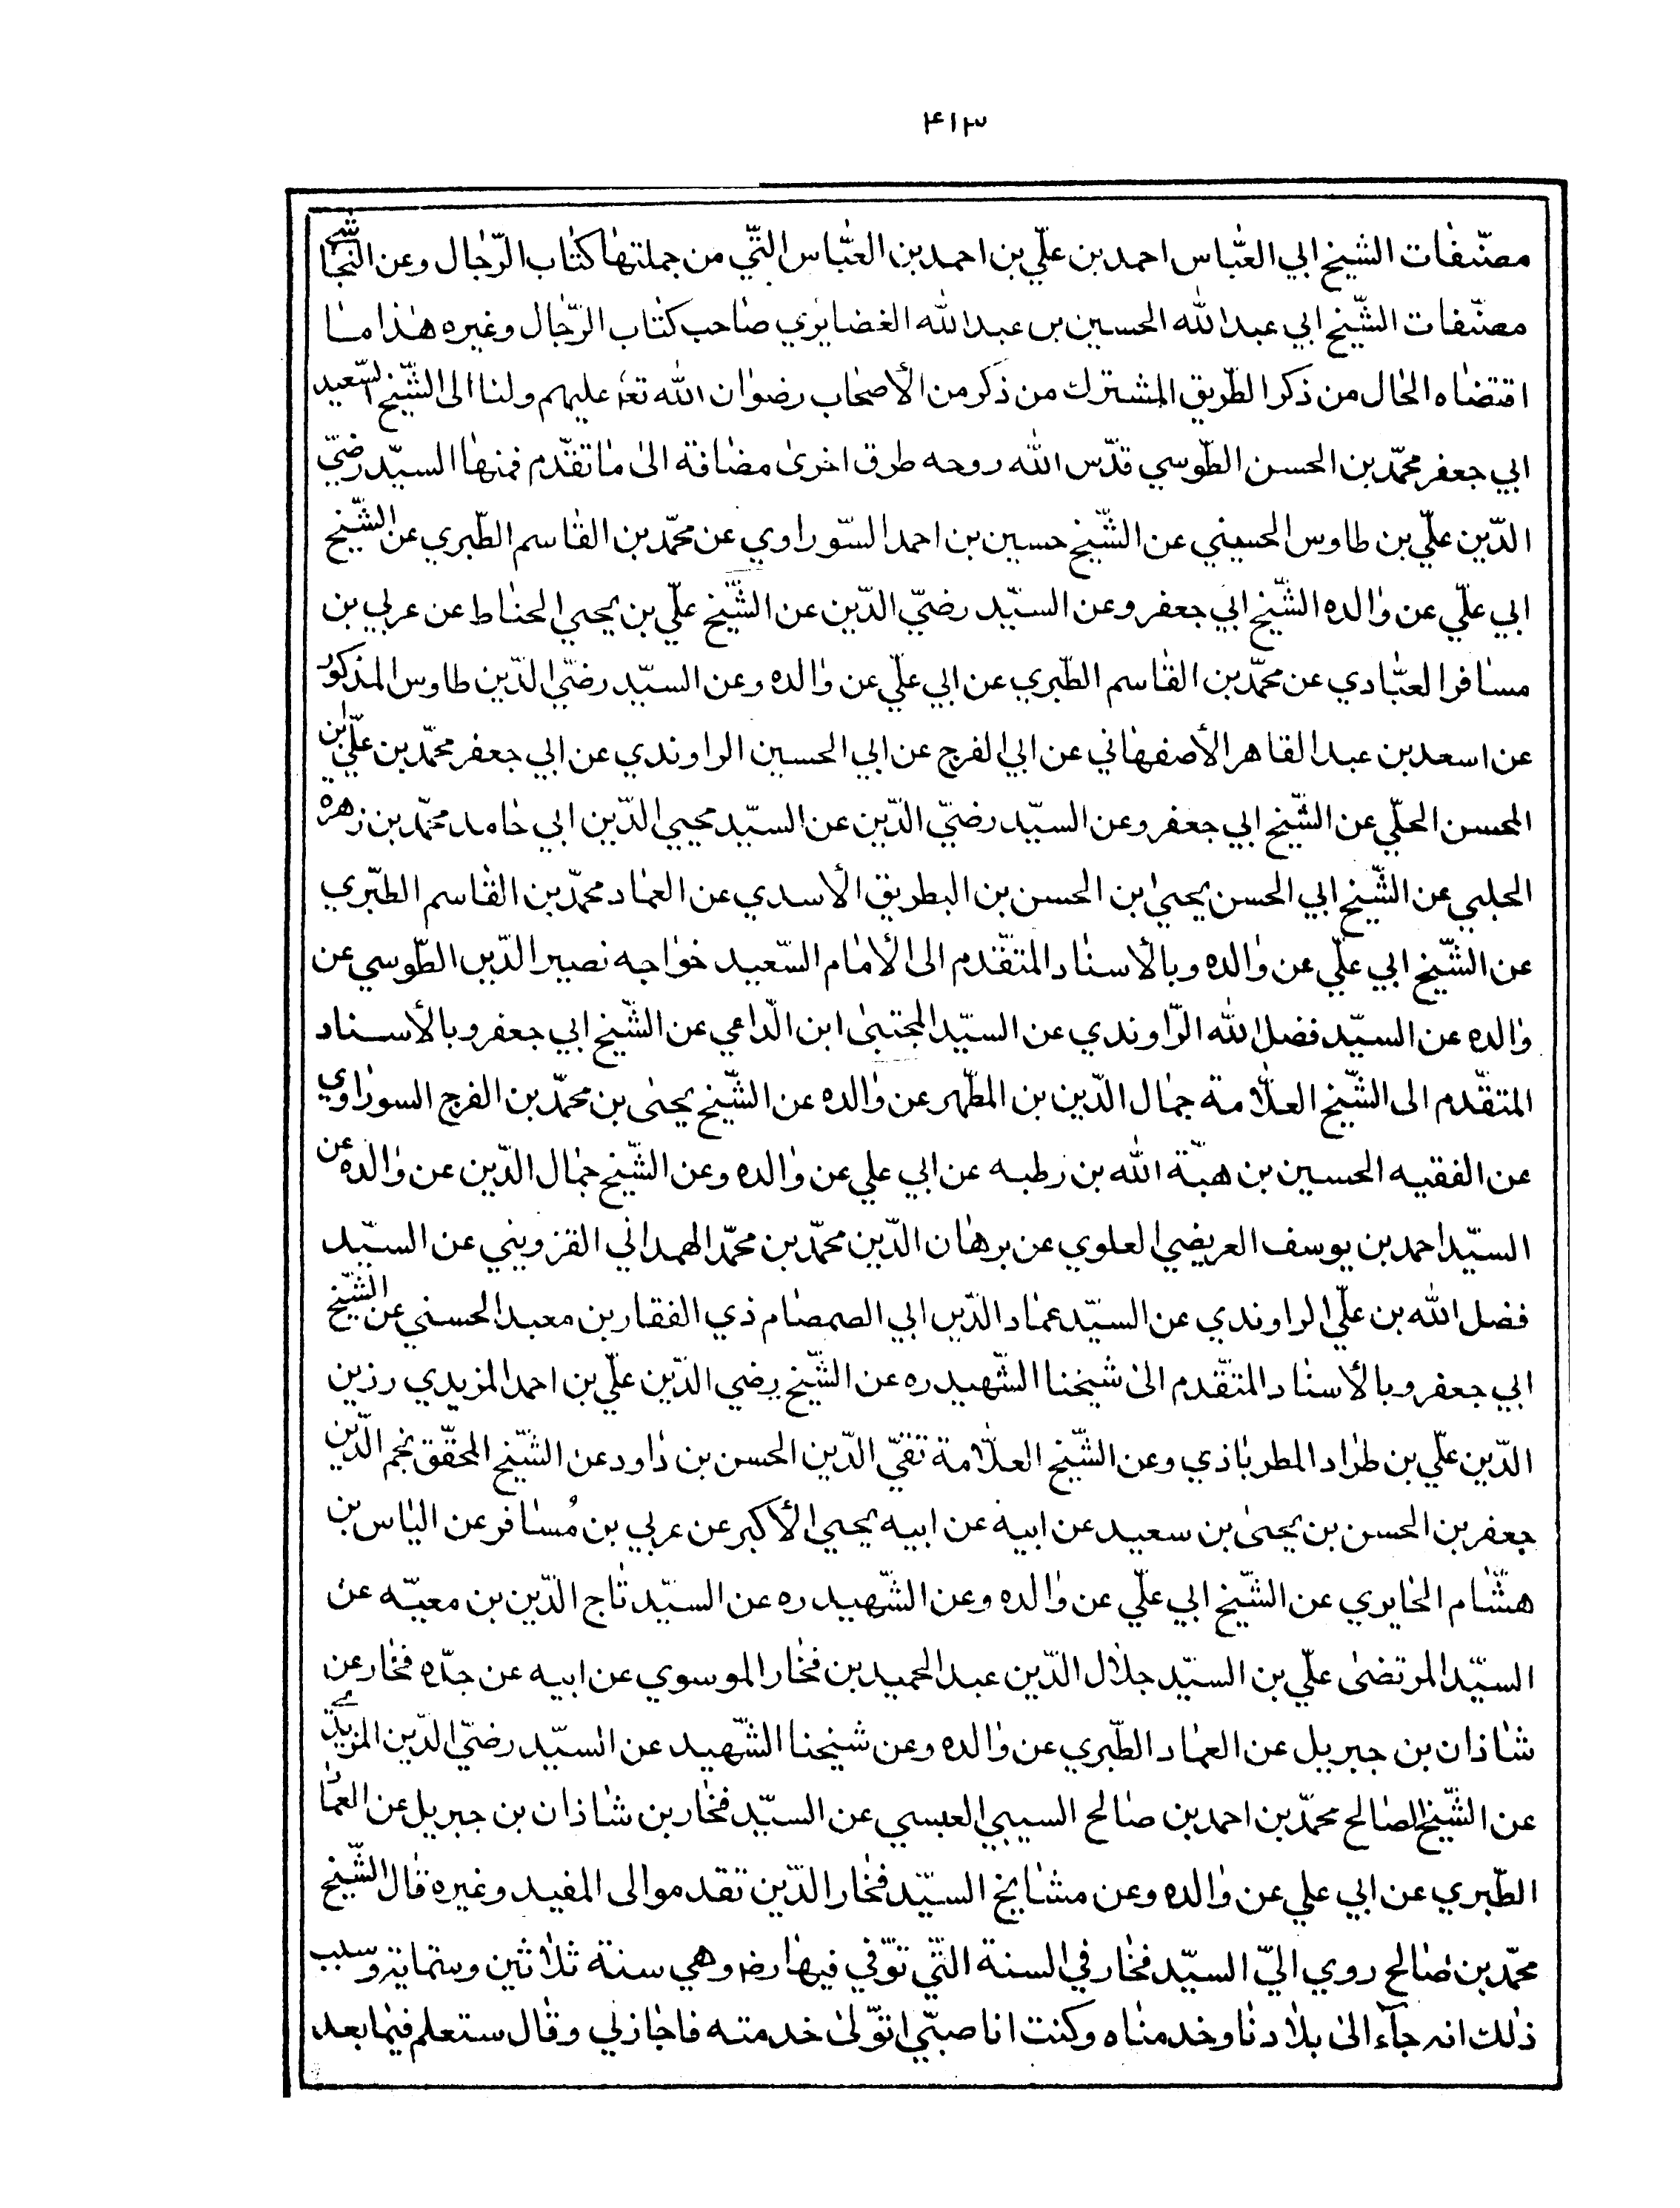 ۴۱۳
مصنّفات الشيخ ابي العبّاس احمد بن علّي بن احمد بن العبّاس التّي من جملتها كتاب الرّجال وعن النجاشي
مصنّفات الشّيخ ابي عبد الله الحسين بن عبد الله الغضايري صاحب كتاب الرّجال وغيره هذا ما
اقتضاه الحال من ذكر الطّريق المشترك من ذكر من الأصحاب رضوان الله تعه عليهم ولنا الى الشّيخ السّعيد
ابي جعفر محمّد بن الحسن الطّوسي قدّس الله روحه طرق اخرى مضافة الى ما تقدّم فمنها السيّد رضيّ
الدّين علّي بن طاوس الحسيني عن الشّيخ حسين بن احمد السّوراوي عن محمّد بن القاسم الطّبري عن الشّيخ
ابي علّي عن والده الشّيخ ابي جعفر وعن السيّد رضيّ الدّين عن الشّيخ علّي بن يحيي الحناط عن عربي بن
مسافر العبّادي عن محمّد بن القاسم الطّبري عن ابي علّي عن والده وعن السيّد رضيّ الدّين طاوس المذكور
عن اسعد بن عبد القاهر الأصفهاني عن ابي الفرج عن ابي الحسين الراوندي عن ابي جعفر محمّد بن علّي بن
المحسن الحلّي عن الشّيخ ابي جعفر وعن السيّد رضيّ الدّين عن السيّد محيي الدّين ابي حامد محمّد بن زهره
الحلبي عن الشّيخ ابي الحسن يحيىٰ بن الحسن بن البطريق الأسدي عن العماد محمّد بن القاسم الطبّري
عن الشّيخ ابي علّي عن والده وبالأسناد المتقّدم الى الأمام السّعيد خواجه نصير الدّين الطّوسي عن
والده عن السيّد فضل الله الرّاوندي عن السيّد المجتبىٰ ابن الّداعي عن الشّيخ ابي جعفر وبالأسناد
المتقّدم الى الشّيخ العلّامة جمال الدّين بن المطّهر عن والده عن الشّيخ يحيى بن محمّد بن الفرج السوراوي
عن الفقيه الحسين بن هبّة الله بن رطبه عن ابي علي عن والده وعن الشّيخ جمال الدّين عن والده عن
السيّد احمد بن يوسف العريضي العلوي عن برهان الدّين محمّد بن محمّد الهمداني القزويني عن السيّد
فضل الله بن علّي الراوندي عن السيّد عماد الدّين ابي الصمصام ذي الفقار بن معبد الحسني عن الشّيخ
ابي جعفر وبالأسناد المتقّدم الىٰ شيخنا الشّهيد ره عن الشّيخ رضي الدّين علّي بن احمد المزيدي رزين
الدّين علّي بن طراد المطرباذي وعن الشّيخ العلّامة تقيّ الدّين الحسن بن داود عن الشّيخ المحقّق نجم الدّين
جعفر بن الحسن بن يحيىٰ بن سعيد عن ابيه عن ابيه يحيي الأكبر عن عربي بن مُسافر عن الياس بن
هشّام الحايري عن الشّيخ ابي علّي عن والده وعن الشّهيد ره عن السيّد تاج الدّين بن معيّه عن
السيّد المرتضىٰ علّي بن السيّد جلال الدّين عبد الحميد بن فخار الموسوي عن ابيه عن جدّه فخار عن
شاذان بن جبريل عن العماد الطّبري عن والده وعن شيخنا الشّهيد عن السيّد رضيّ الدّين المزيدي
عن الشّيخ الصالح محمّد بن احمد بن صالح السيبي العبسي عن السيّد فخار بن شاذان بن جبريل عن العماد
الطّبري عن ابي علي عن والده وعن مشايخ السيّد فخار الدّين تقدموا لى المفيد وغيره قال الشّيخ
محمّد بن صالح روي اليّ السيّد فخار في السنة التّي توّفي فيها رضه وهي سنة ثلاثين وستماية وسبب
ذلك انه جآء الىٰ بلادنا وخدمناه وكنت انا صبّي اتوّلىٰ خدمته فاجازلي وقال ستعلم فيما بعد